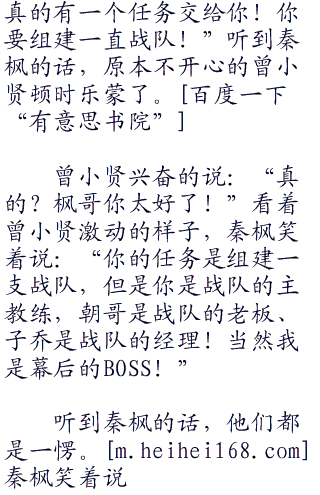 真的有一个任务交给你！你
要组建一直战队！”听到秦
枫的话，原本不开心的曾小
贤顿时乐蒙了。[百度一下
“有意思书院”]
曾小贤兴奋的说：“真
的？枫哥你太好了！”看着
曾小贤激动的样子，秦枫笑
着说：“你的任务是组建一
支战队，但是你是战队的主
教练，朝哥是战队的老板、
子乔是战队的经理！当然我
是幕后的BOSS！”
听到秦枫的话，他们都
是一愣。[m.heihei168.com]
秦枫笑着说